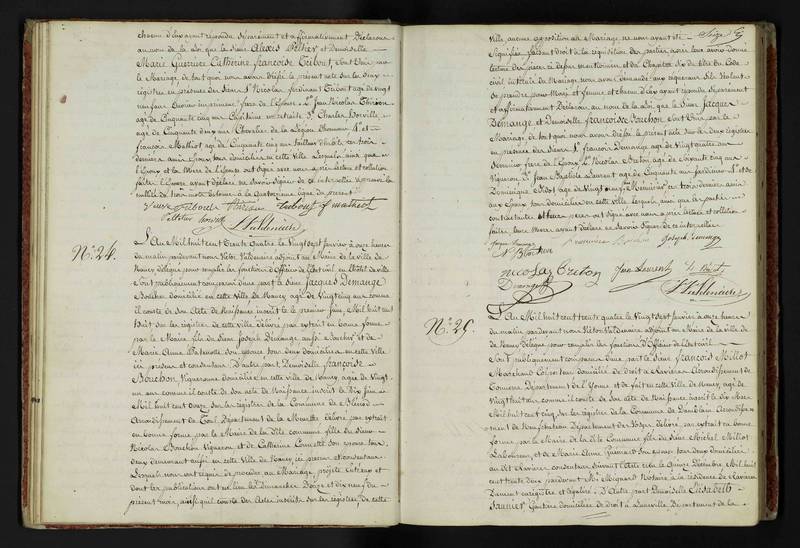 chacun d'eux ayant répondu séparément et affirmativement Déclarons
au nom de la loi que le Sieur Alexis Peltier et Demoiselle
Marie Catherine Françoise sont unis par
le Mariage, de tout quoi nous avons dressé le présent acte sur les deux
registres en présence des Sieurs Nicolas ferdinand âgé de vingt
neuf ans imprimeur frère de l'Epouse, Jean Nicolas Thirion
âgé de Cinquante cinq ans Capitaine en retraite, 3° Charles
âgé de Cinquante deux ans Chevalier de la Légion d'honneur 4° et
françois Mathiot âgé de Cinquante cinq ans Tailleur d'habits, ces trois
derniers amis tous domiciliés en cette Ville Lesquels ainsi que
l'Epoux et la Mère de l'Epouse ont signé avec nous après lecture et
faite, l'Epouse ayant déclaré ne savoir signer de ce interpellée
nulle de trois mots à la quatorzième ligne du présent
mathiot
N° 24.
L'An Mil huit cent trente quatre le Vingt sept Janvier à onze heures
du matin pardevant nous Victor Valdenaire adjoint au Maire de la ville de
Nancy délégué pour remplir les fonctions d'Officier de l'Etat civil en l'hôtel de ville
sont publiquement comparus d'une part le Sieur Jacques Demange
Boucher domicilié en cette ville de Nancy âgé de vingt cinq ans comme
il conste de son Acte de Naissance inscrit le premier Mil huit cent
huit sur les registres de cette ville délivré par extrait en bonne forme
par le Maire fils du Sieur Joseph Demange aussi Boucher et de
Marie Anne son épouse tous deux domiciliés en cette Ville
ici présens et consentans D'autre part, Demoiselle françoise
Bouchon, Vigneronne domiciliée en cette ville de Nancy, âgée de Vingt
un ans comme il conste de son acte de Naissance inscrit le Dix
Mil huit cent Douze sur les registres de la Commune de Blénod
Arrondissement de Toul, Département de la Meurthe délivré par extrait
en bonne forme par le Maire de la dite commune fille du Sieur
Nicolas Bouchon Vigneron et de Catherine son épouse tous
deux demeurant aussi en cette ville de Nancy ici présens et consentans
Lesquels nous ont requis de procéder au Mariage projeté entr'eux et
dont les publications ont eu lieu les Dimanches Douze et Dix neuf du
présent mois, ainsi qu'il conste des Actes inscrits sur les registres de cette
Seize
Ville, aucune opposition au Mariage ne nous ayant été
Signifiée faisant droit à la réquisition des parties après leur avoir donné
lecture des pièces ci dessus mentionnées et du Chapitre six du titre du Code
civil intitulé du Mariage nous avons demandé aux requérans s'ils veulent
se prendre pour Mari et femme et chacun d'eux ayant répondu séparément
et affirmativement Déclarons au nom de la loi que le Sieur Jacques
Demange et Demoiselle françoise Bouchon sont Unis par le
Mariage, de tout quoi nous avons dressé le présent acte sur les deux registres
en présence des Sieurs 1° françois Demange âgé de Vingt quatre ans
frère de l'Epoux, 2° Nicolas Breton âgé de soixante cinq ans
Vigneron 3° Jean Baptiste Laurent âgé de Cinquante ans Jardinier 4° et
Dominique âgé de Vingt ans ces trois derniers amis
aux Epoux tous domiciliés en cette ville lesquels ainsi que les parties
contractantes et leurs pères ont signé avec nous après lecture et collation
faites, leurs Mères ayant déclaré ne savoir signer de ce interpellées
Joseph Demange
N Bouchon
nicolas Breton
Jean Laurent
Demange
N° 25.
L'An Mil huit cent trente quatre le Vingt sept Janvier à onze heures
du matin pardevant nous Victor Valdenaire adjoint au Maire de la ville de
Nancy Délégué pour remplir les fonctions D'Officier de l'Etat civil
sont publiquement comparus d'une part le Sieur françois Millot
Marchand Colporteur domicilié de droit à Ravières Arrondissement de
Tonnerre Département de l'Yonne et de fait en cette Ville de Nancy, âgé de
Vingt huit ans comme il conste de son Acte de Naissance inscrit le Dix Mars
Mil huit cent cinq sur les registres de la Commune de Damblain Arrondisse
ment de Neufchâteau Département des Vosges délivré par extrait en bonne
forme par le Maire de la dite Commune fils du Sieur Michel Millot
Laboureur et de Marie Anne son épouse tous deux domiciliés
au dit Ravières consentans suivant l'acte reçu le Quinze Décembre Mil huit
cent trente deux pardevant Me Notaire à la résidence de Ravières
Dument enregistré et légalisé. D'Autre part Demoiselle Elisabeth
Saunier Gantière domiciliée de droit à Lunéville, Département de la